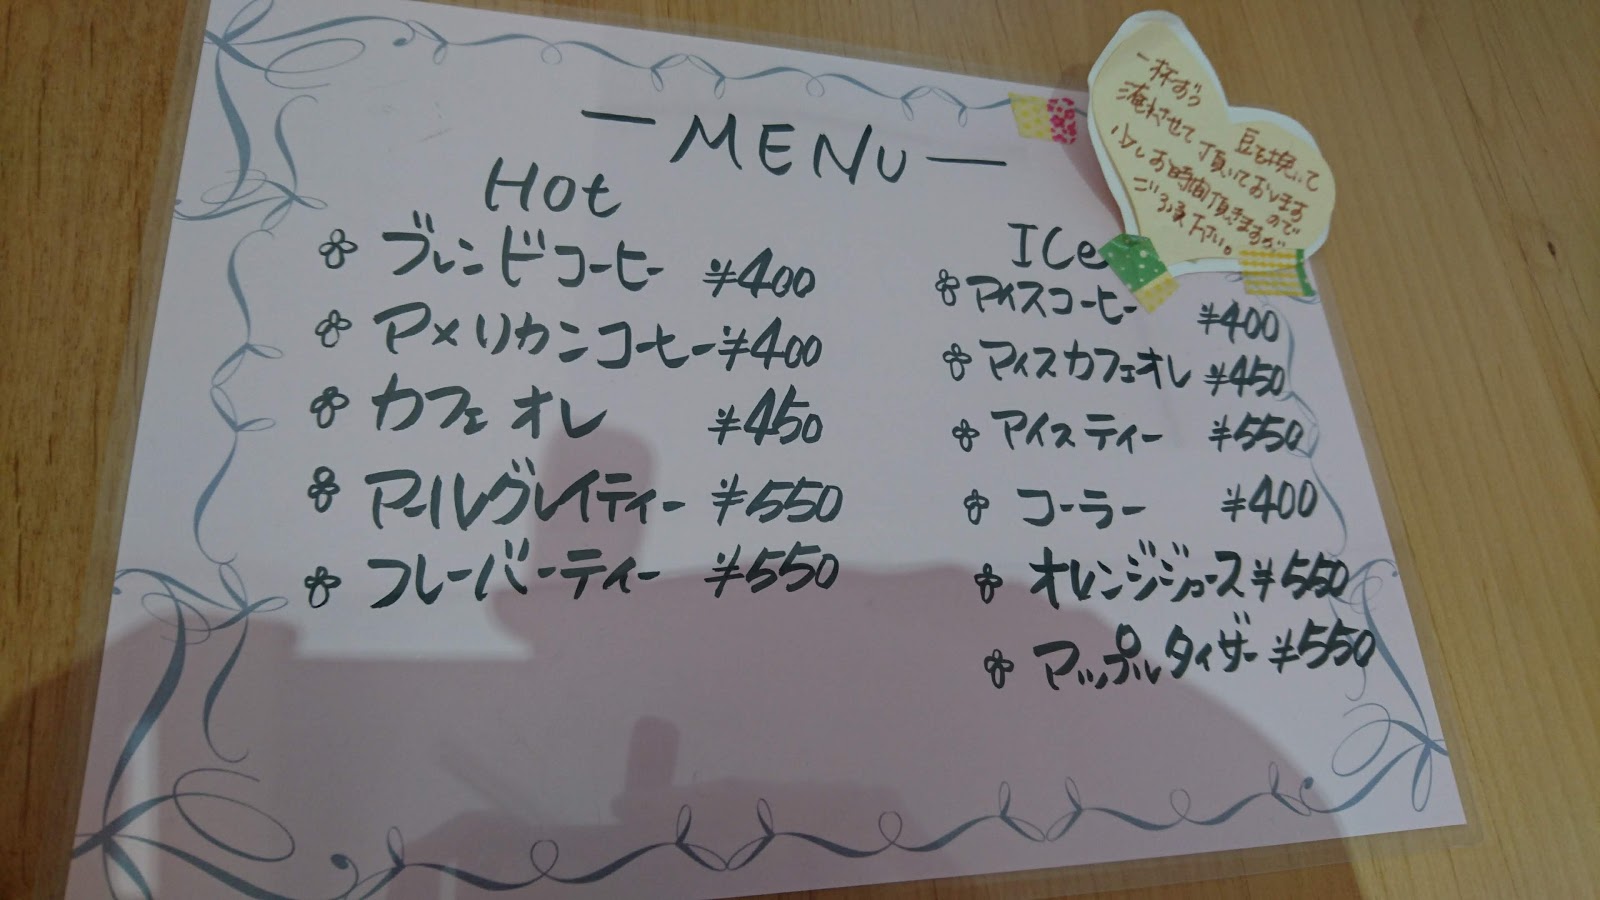 —MENU—
Hot
ブレンドコーヒー ¥400
アメリカンコーヒー ¥400
カフェオレ ¥450
アールグレイティー ¥550
フレーバーティー ¥550
ICe
アイスコーヒー ¥400
アイスカフェオレ ¥450
アイスティー ¥550
コーラー ¥400
オレンジジュース ¥550
アップルタイザー ¥550
一杯ずつ 豆を挽いて
淹れさせて頂いております
少しお時間頂きますので
ご了承下さい。